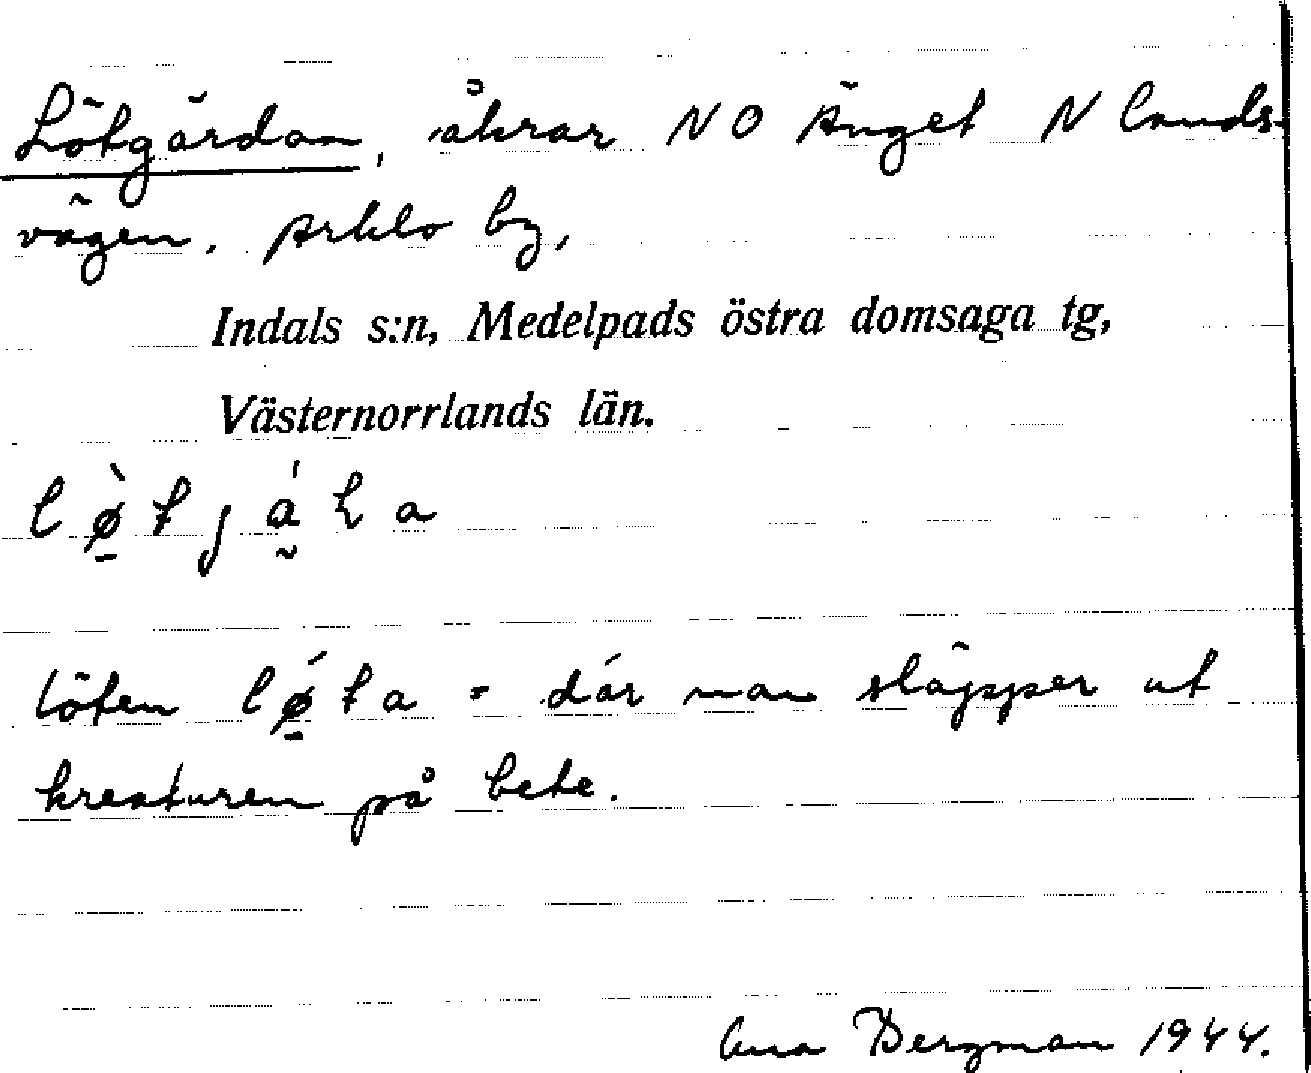 Lötgärdan, åkrar NO Änget N lands-
vägen. Arklo by,
Indals s:n, Medelpads östra domsaga tg,
Västernorrlands län.
löten = där man släpper ut
kreaturen på bete.
Bergman 1944.